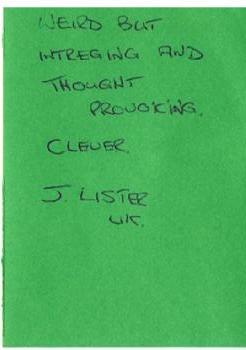 WEIRD BUT
INTREGING AND
THOUGHT
PROVOKING.
CLEVER.
J. LISTER
UK.